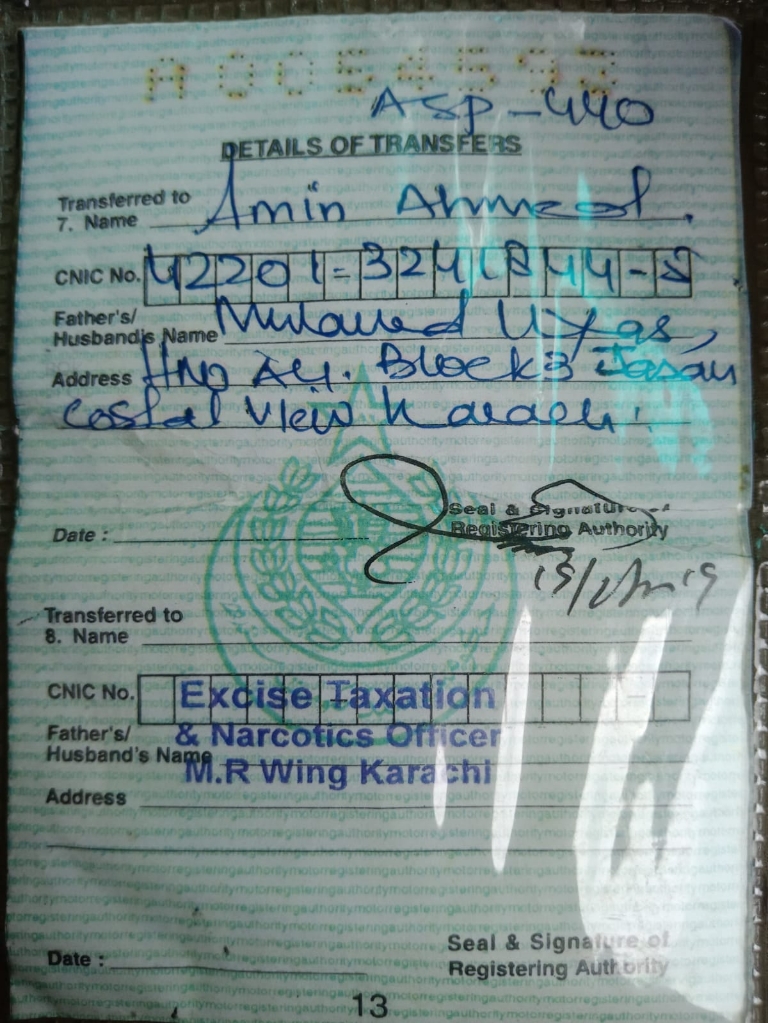 A005459
ASP-440
DETAILS OF TRANSFERS
Transferred to
7. Name Amin Ahmed.
CNIC No. 42201-3241844-5
Father's/
Husband's Name
Address HNO A41. Block 3
Costal View Karachi.
Seal & Signature of
Date : Registering Authority
Transferred to
8. Name
CNIC No. Excise Taxation
Father's/ & Narcotics Officer
Husband's Name
M.R Wing Karachi
Address
Seal & Signature of
Date : Registering Authority
13